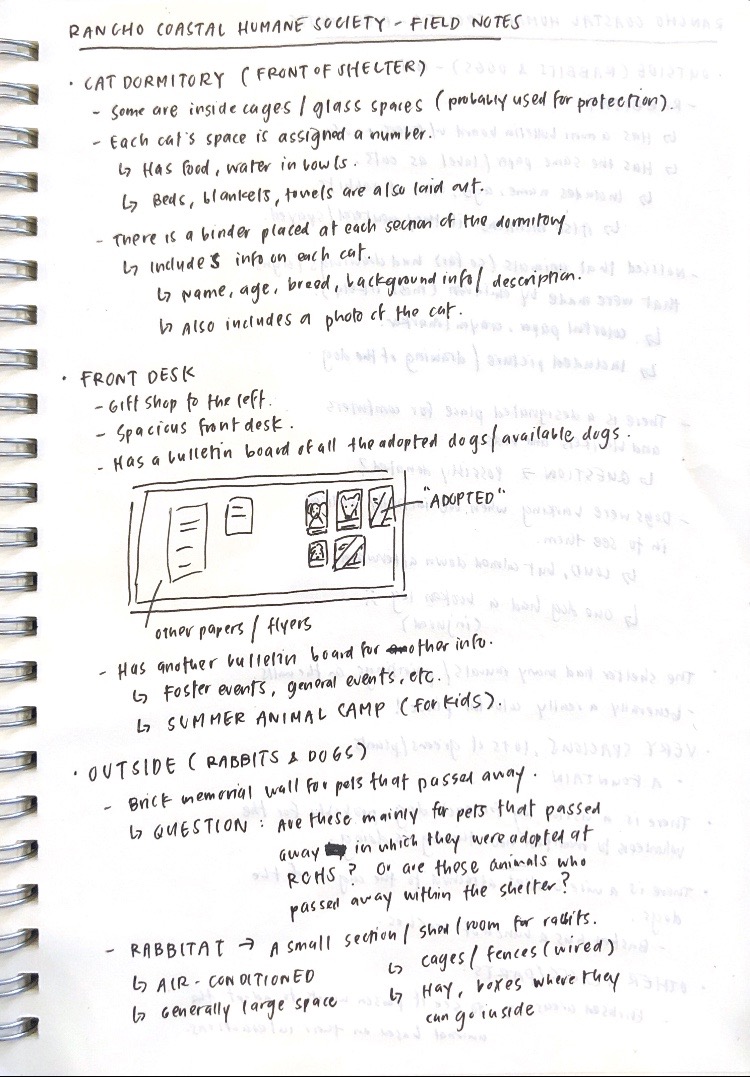 RANCHO COASTAL HUMANE SOCIETY - FIELD NOTES
· CAT DORMITORY (FRONT OF SHELTER)
- Some are inside cages / glass spaces (probably used for protection).
- Each cat's space is assigned a number.
↳ Has food, water in bowls.
↳ Beds, blankets, towels are also laid out.
- There is a binder placed at each section of the dormitory
↳ Includes info on each cat.
↳ Name, age, breed, background info / description.
↳ Also includes a photo of the cat.
· FRONT DESK
- Gift shop to the left.
- Spacious front desk.
- Has a bulletin board of all the adopted dogs / available dogs.
"ADOPTED"
other papers / flyers
- Has another bulletin board for other info.
↳ Foster events, general events, etc.
↳ SUMMER ANIMAL CAMP (for kids).
· OUTSIDE (RABBITS & DOGS)
- Brick memorial wall for pets that passed away.
↳ QUESTION: Are these mainly for pets that passed
away in which they were adopted at
RCHS? Or are those animals who
passed away within the shelter?
- RABBITAT → A small section / shed / room for rabbits.
↳ AIR-CONDITIONED
↳ Generally large space
↳ cages / fences (wired)
↳ Hay, boxes where they
can go inside